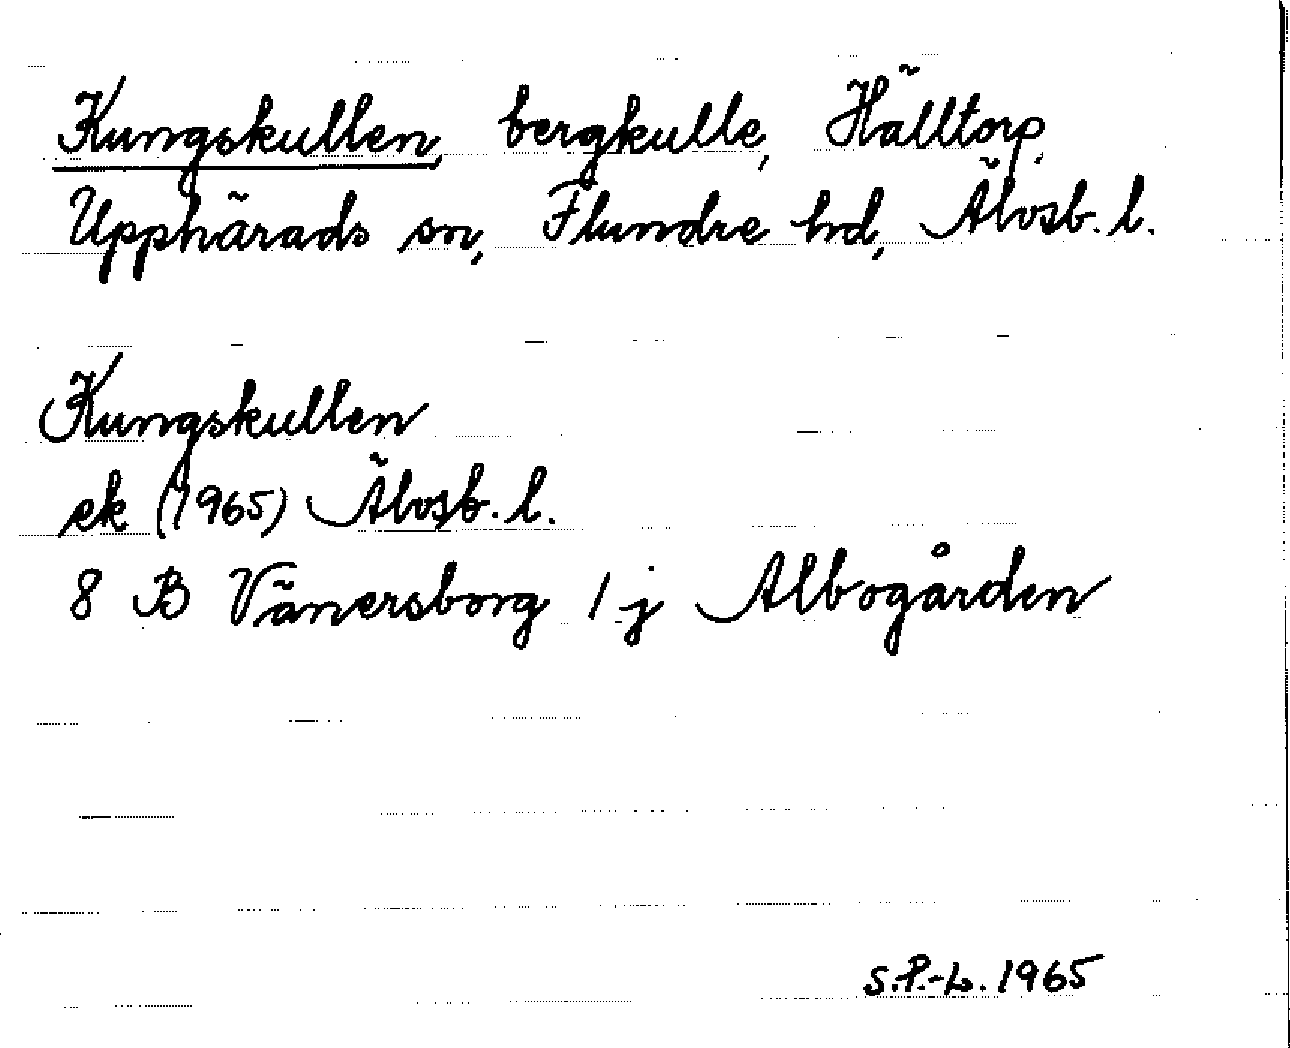 Kungskullen, bergkulle, Hälltorp,
Upphärads sn, Flundre hd, Älvsb. l.
Kungskullen
ek (1965) Älvsb. l.
8 B Vänersborg 1 j Albogården
S.P.-L. 1965